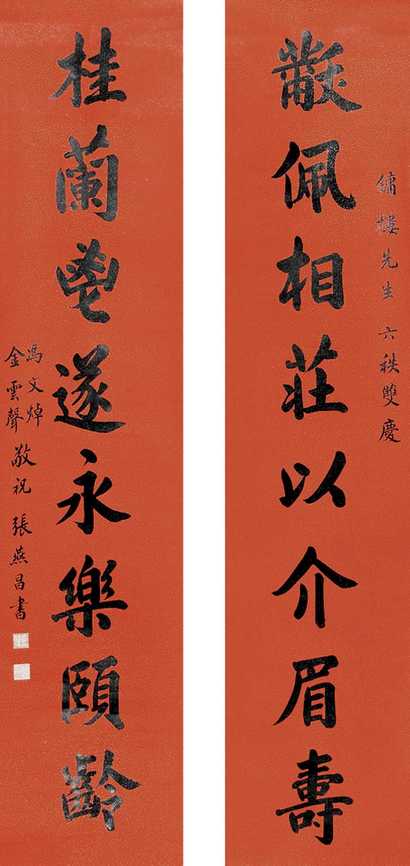 鏞樓先生六秩雙慶
黻佩相莊以介眉壽
桂蘭鬯遂永樂頤齡
馮文焯
金雲聲
敬祝 張燕昌書